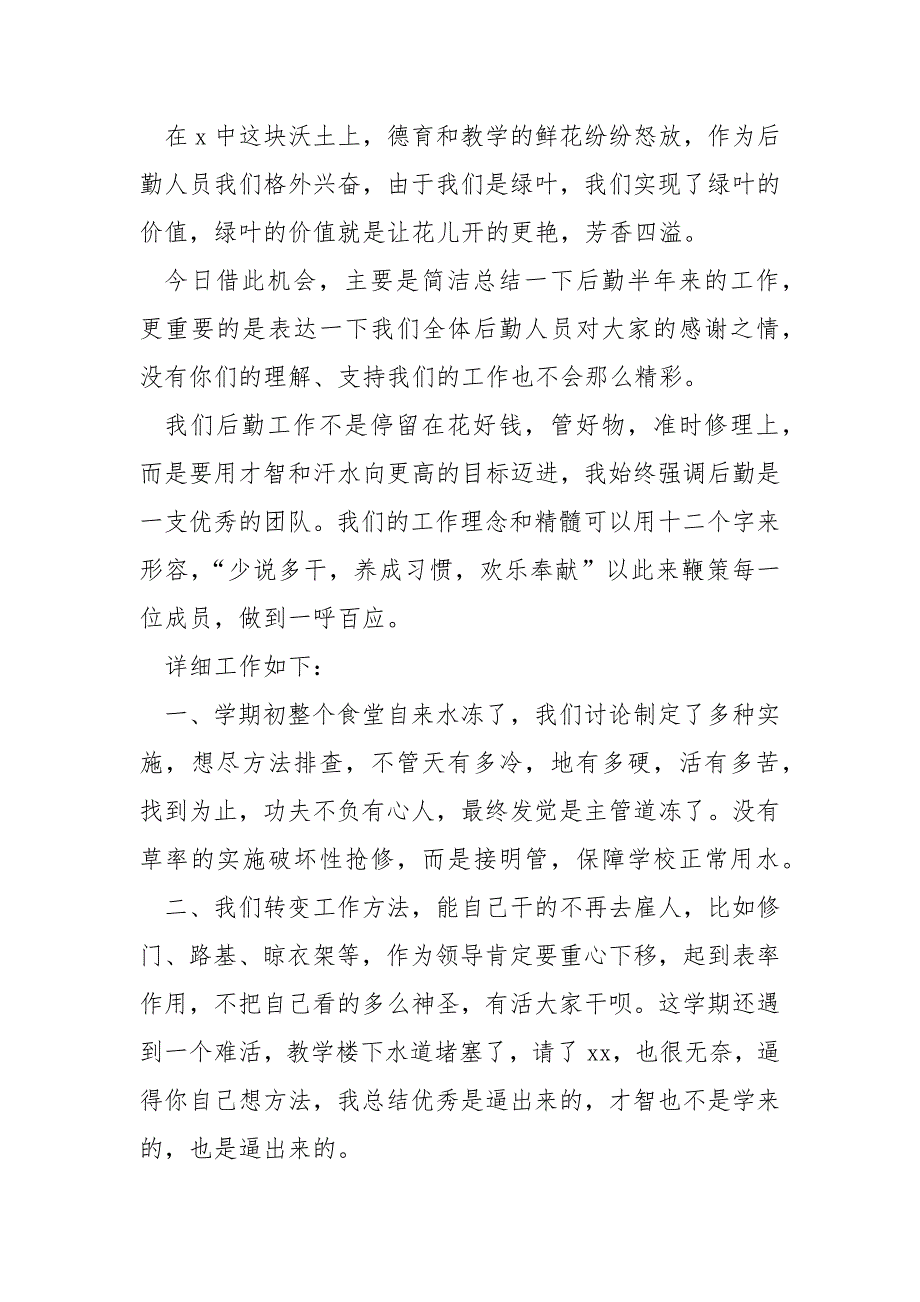 在 x 中这块沃土上，德育和教学的鲜花纷纷怒放，作为后
勤人员我们格外兴奋，由于我们是绿叶，我们实现了绿叶的
价值，绿叶的价值就是让花儿开的更艳，芳香四溢。
今日借此机会，主要是简洁总结一下后勤半年来的工作，
更重要的是表达一下我们全体后勤人员对大家的感谢之情，
没有你们的理解、支持我们的工作也不会那么精彩。
我们后勤工作不是停留在花好钱，管好物，准时修理上，
而是要用才智和汗水向更高的目标迈进，我始终强调后勤是
一支优秀的团队。我们的工作理念和精髓可以用十二个字来
形容，“少说多干，养成习惯，欢乐奉献”以此来鞭策每一
位成员，做到一呼百应。
详细工作如下：
一、学期初整个食堂自来水冻了，我们讨论制定了多种实
施，想尽方法排查，不管天有多冷，地有多硬，活有多苦，
找到为止，功夫不负有心人，最终发觉是主管道冻了。没有
草率的实施破坏性抢修，而是接明管，保障学校正常用水。
二、我们转变工作方法，能自己干的不再去雇人，比如修
门、路基、晾衣架等，作为领导肯定要重心下移，起到表率
作用，不把自己看的多么神圣，有活大家干呗。这学期还遇
到一个难活，教学楼下水道堵塞了，请了 xx，也很无奈，逼
得你自己想方法，我总结优秀是逼出来的，才智也不是学来
的，也是逼出来的。